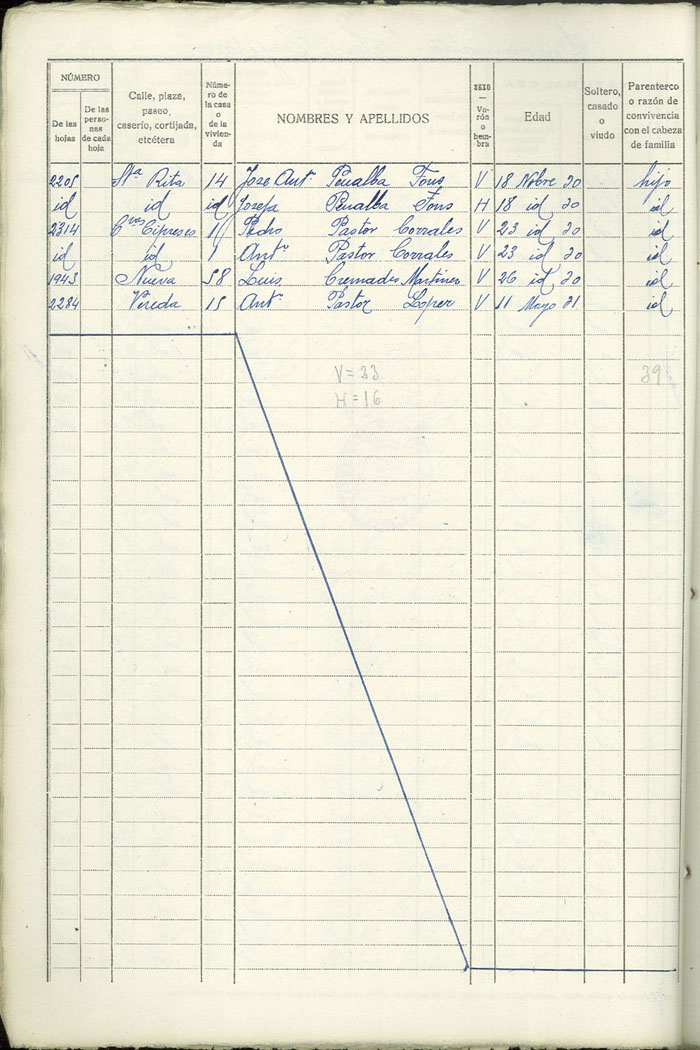 NÚMERO
De las hojas
De las personas de cada hoja
Calle, plaza, paseo, caserío, cortijada, etcétera
Número de la casa o de la vivienda
NOMBRES Y APELLIDOS
SEXO — Varón o hembra
Edad
Soltero, casado o viudo
Parentesco o razón de convivencia con el cabeza de familia
2205 Sta Rita 14 Jose Antº Penalba Fons V 18 Nobre 20 hijo
id id id Josefa Penalba Fons H 18 id 20 id
2314 Cipreses 1 Pedro Pastor Corrales V 23 id 20 id
id id 1 Antº Pastor Corrales V 23 id 20 id
1943 Nueva 58 Luis Cremades Martinez V 26 id 20 id
2284 Vereda 15 Antº Pastor Lopez V 11 Mayo 21 id
V = 23 39
H = 16